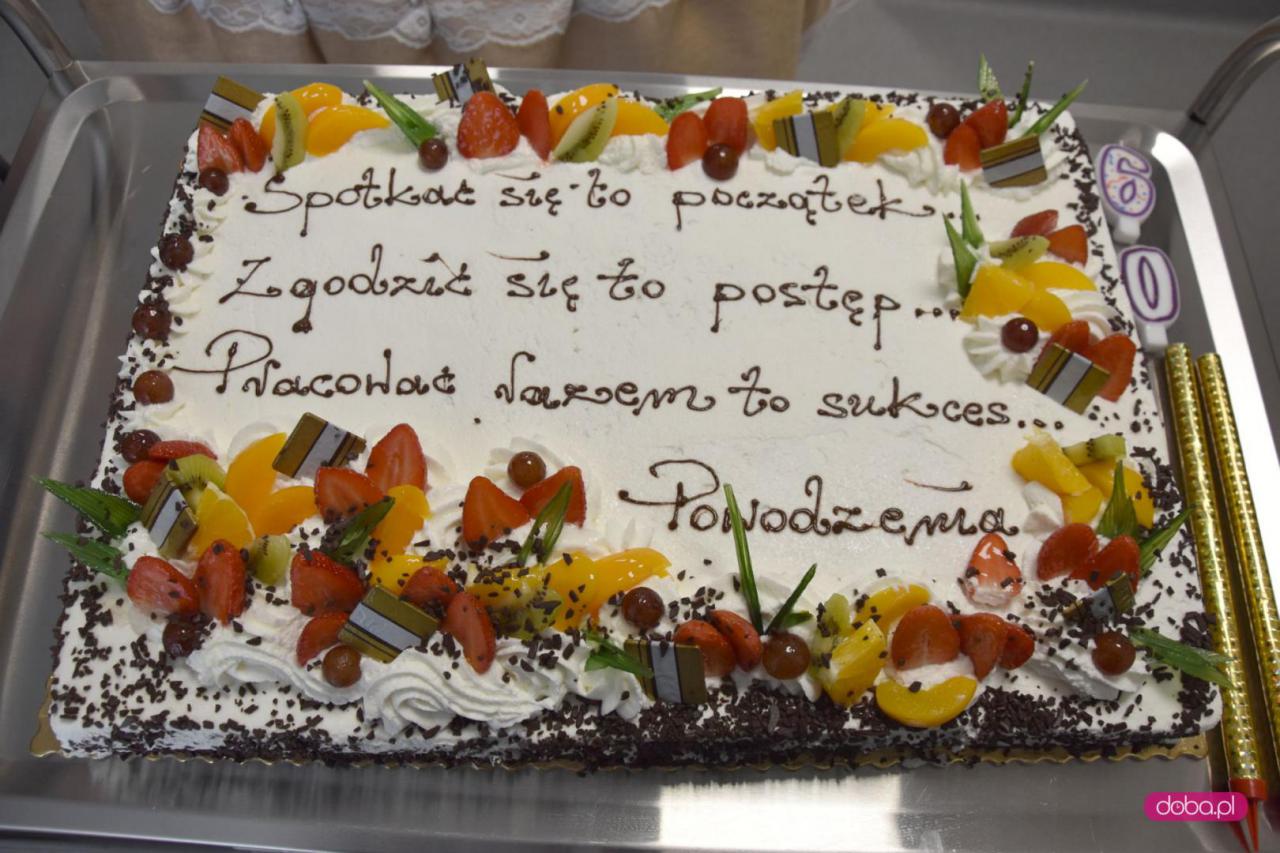 Spotkać się to początek...
Zgodzić się to postęp...
Pracować razem to sukces...
Powodzenia
60
doba.pl